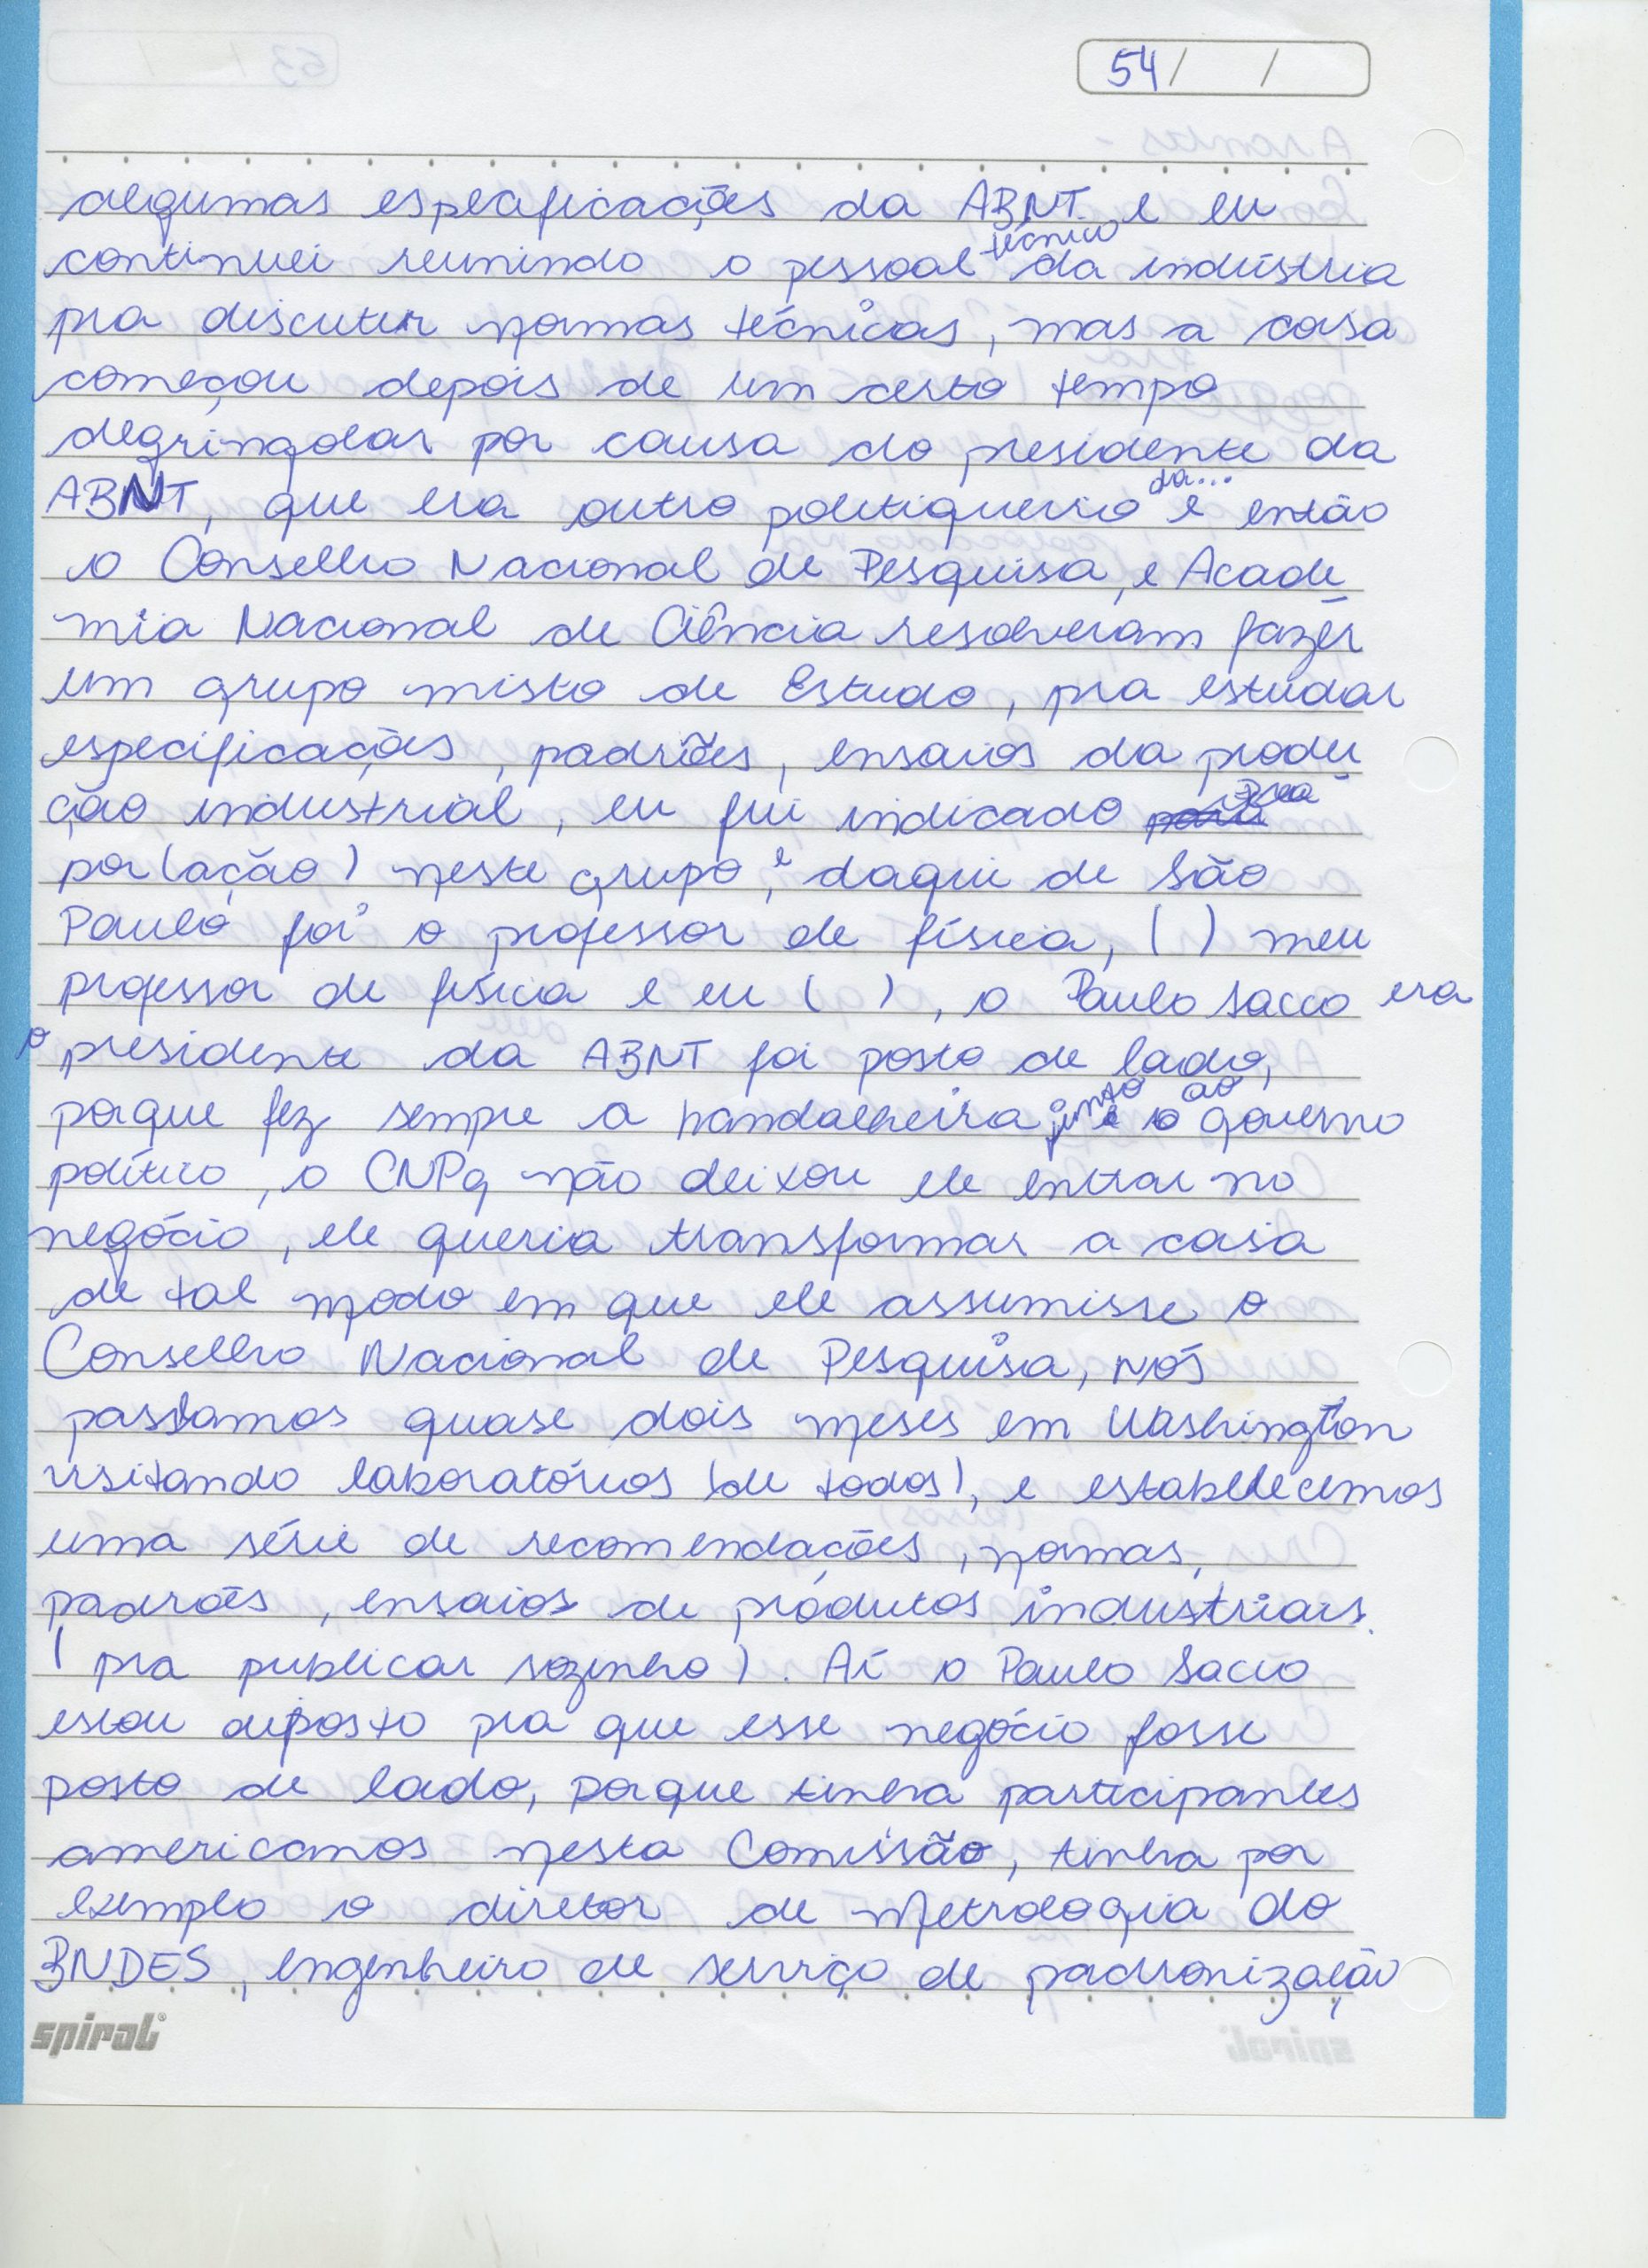 54/ /
algumas especificações da ABNT e eu
continuei reunindo o pessoal técnico da indústria
pra discutir normas técnicas, mas a casa
começou depois de um certo tempo
degringolar por causa do presidente da
ABNT, que era outro politiqueiro da... e então
o Conselho Nacional de Pesquisa, e Acade
mia Nacional de Ciência resolveram fazer
um grupo misto de Estudo, pra estudar
especificações, padrões, ensaios da produ
ção industrial, eu fui indicado pra
por (ação) neste grupo, e daqui de São
Paulo foi o professor de física, ( ) meu
professor de física e eu ( ), o Paulo Sacco era
o presidente da ABNT foi posto de lado,
porque fez sempre a bandalheira junto ao governo
político, o CNPq não deixou ele entrar no
negócio, ele queria transformar a casa
de tal modo em que ele assumisse o
Conselho Nacional de Pesquisa, nós
passamos quase dois meses em Washington
visitando laboratórios (de todos), e estabelecemos
uma série de recomendações, normas,
padrões, ensaios de produtos industriais.
(pra publicar sozinho). Aí o Paulo Sacco
estou diposto pra que esse negócio fosse
posto de lado, porque tinha participantes
americanos nesta Comissão, tinha por
exemplo o diretor de Metrologia do
BNDES, engenheiro de serviço de padronização
spiral®